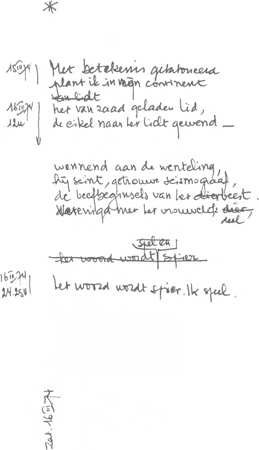 *
15 III 74
Met betekenis getatoeëerd
plant ik in mijn continent
van lidt
16 III 74
12u
het van zaad geladen lid,
de eikel naar het licht gewend —
wennend aan de wenteling,
hij seint, getrouwe seismograaf,
de beefbeginsels van het dier beest.
Verenigd met het vrouwelijk dier
deel,
spel en
het woord wordt spier
16 III 74
24.25u
het woord wordt spier. Ik speel.
Zat. 16 III 74